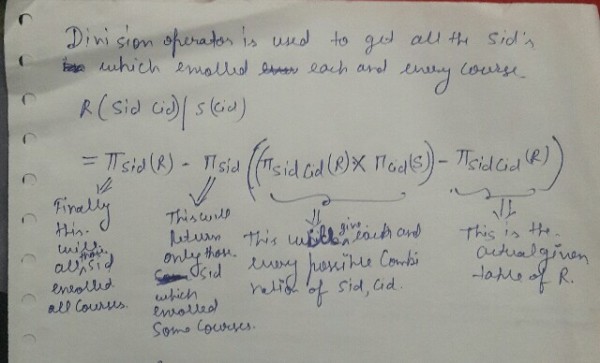 Division operator is used to get all the sid's
which enrolled each and every course
R(Sid Cid) | S(Cid)
= πSid(R) - πSid((πSid Cid(R) × πCid(S)) - πSid Cid(R))
Finally
this.
will
all those Sid
enrolled
all Courses.
This will
Return
only those.
Sid
which
enrolled
Some Courses.
This will give each and
every possible Combi
nation of Sid, Cid.
This is the.
actual given
table of R.